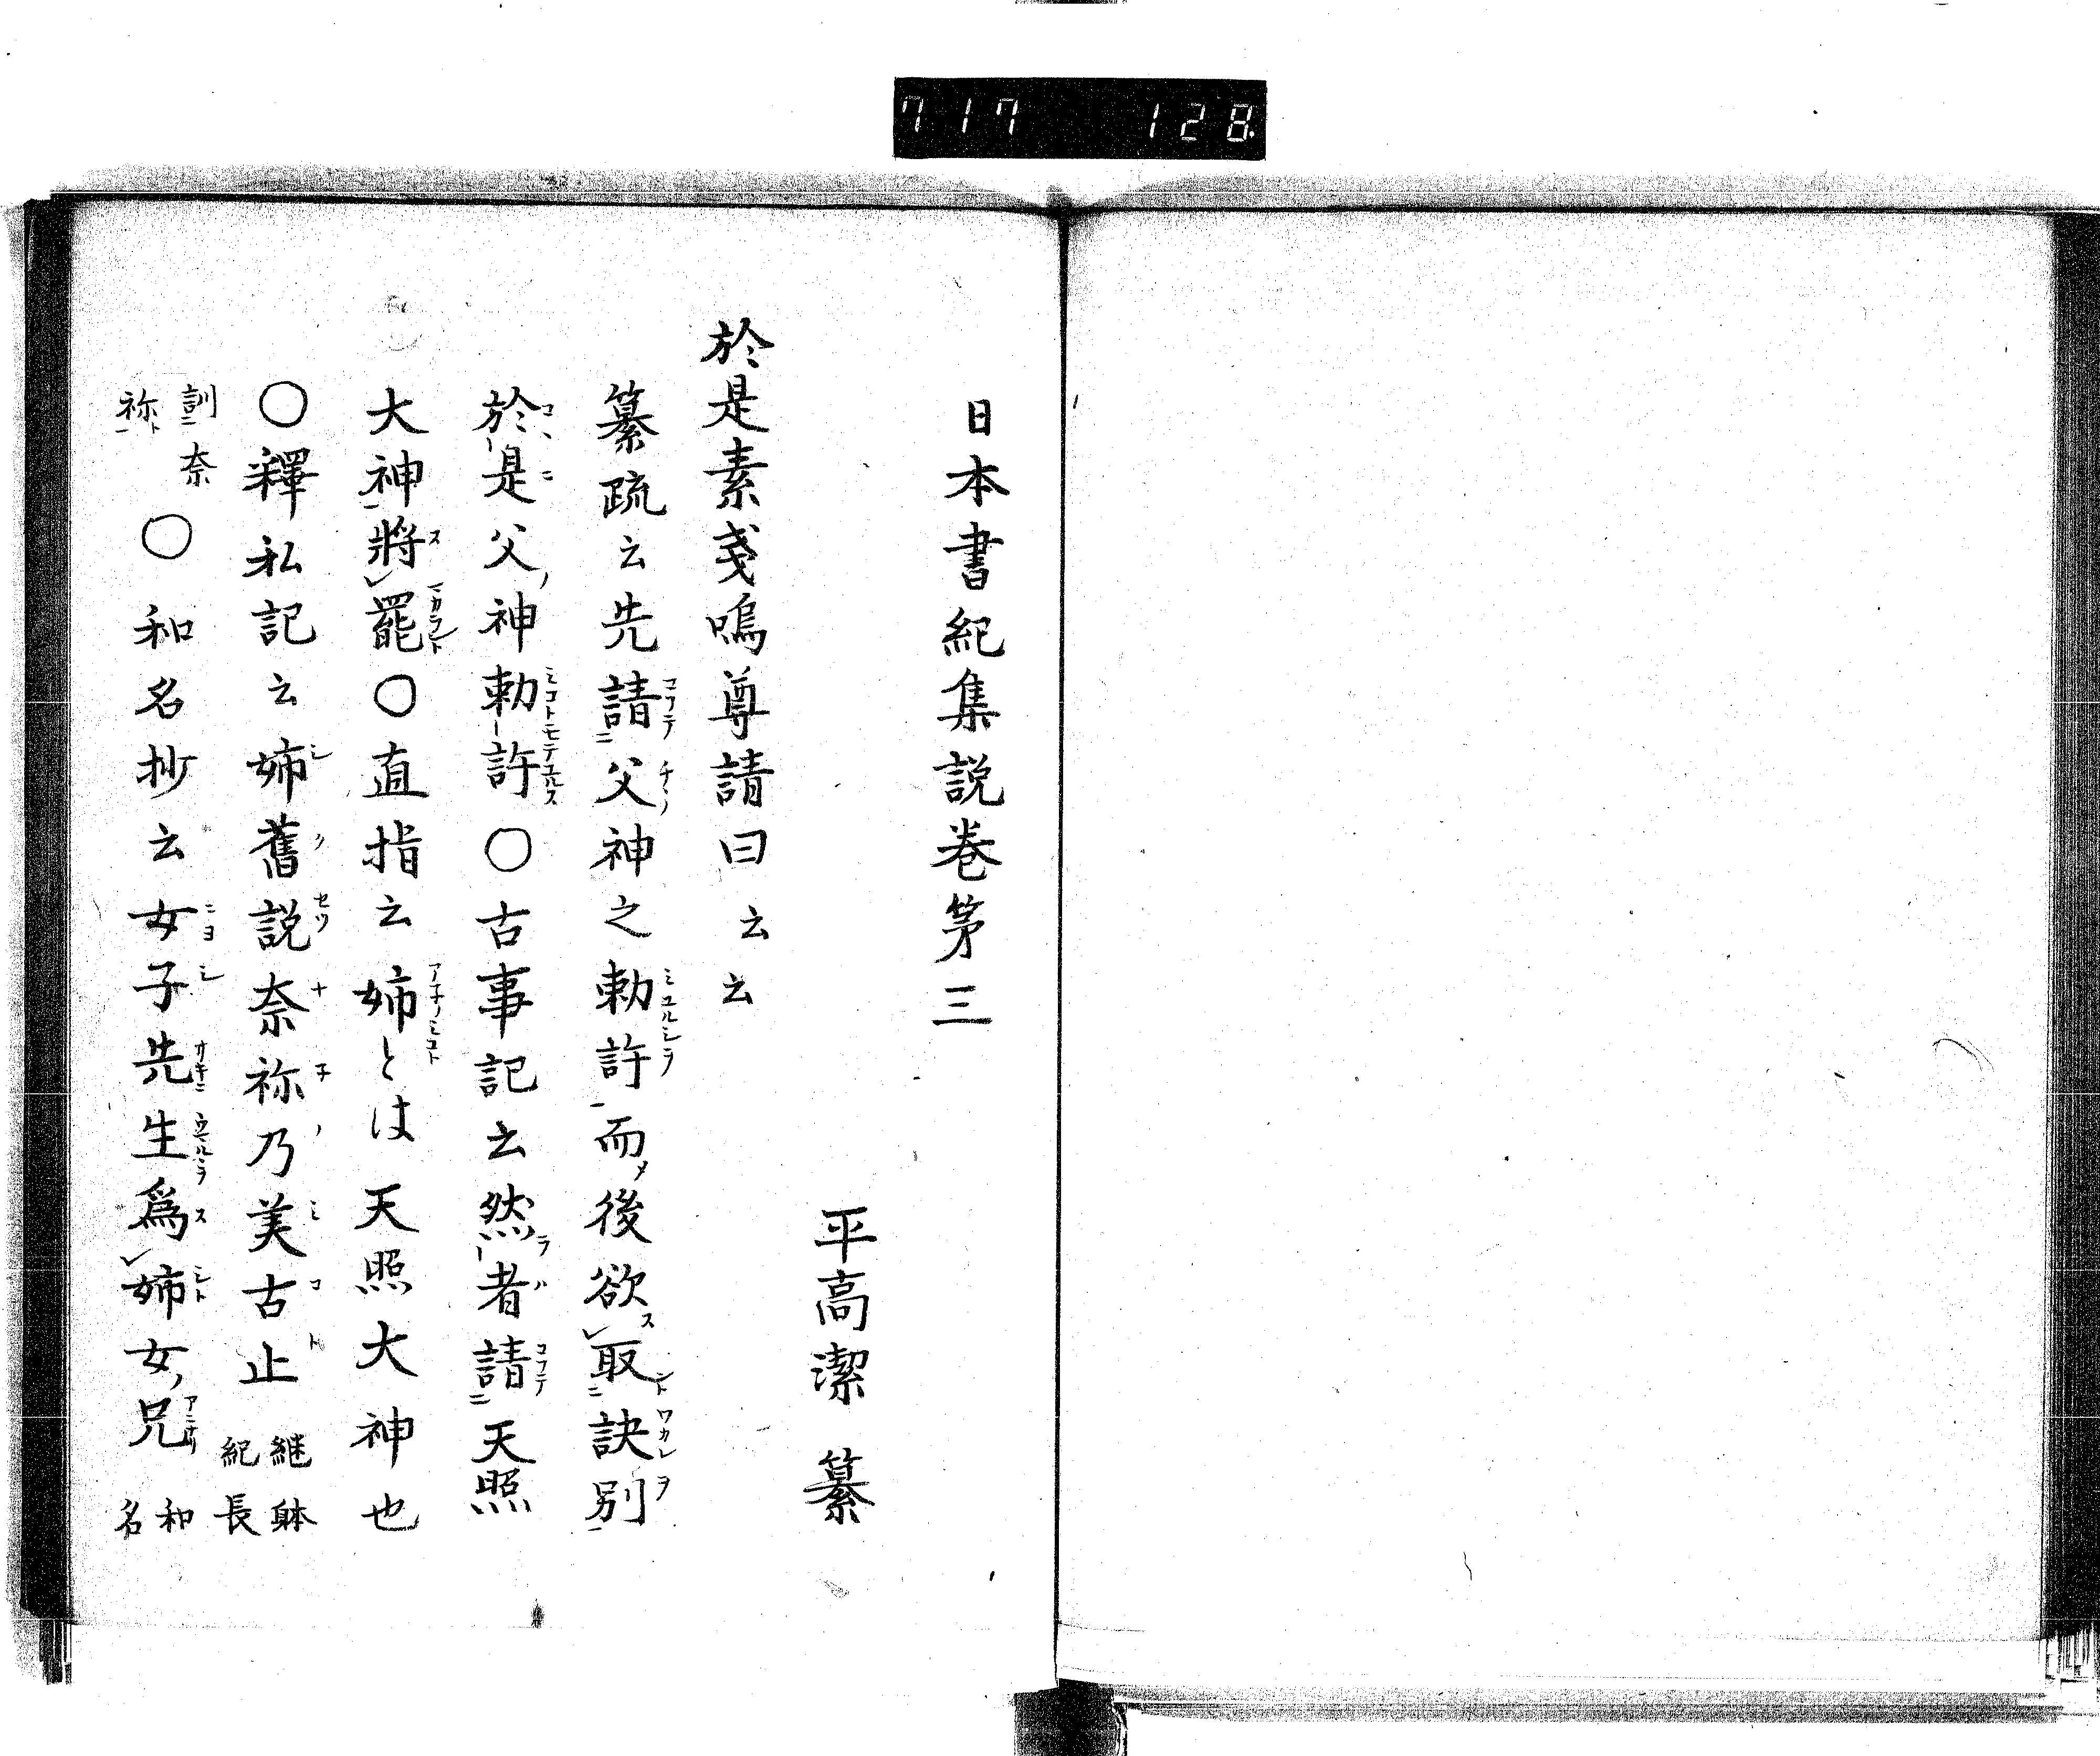 717 128
日本書紀集説巻第三
平高潔 纂
於是素戔嗚尊請曰云云
纂疏云先請父神之勅許而後欲取訣別
於是父神勅許〇古事記云然者請天照
大神將罷〇直指云姉とは天照大神也
〇釋私記云姉舊説奈祢乃美古止 継躰紀長
訓奈祢〇和名抄云女子先生爲姉女兄 和名